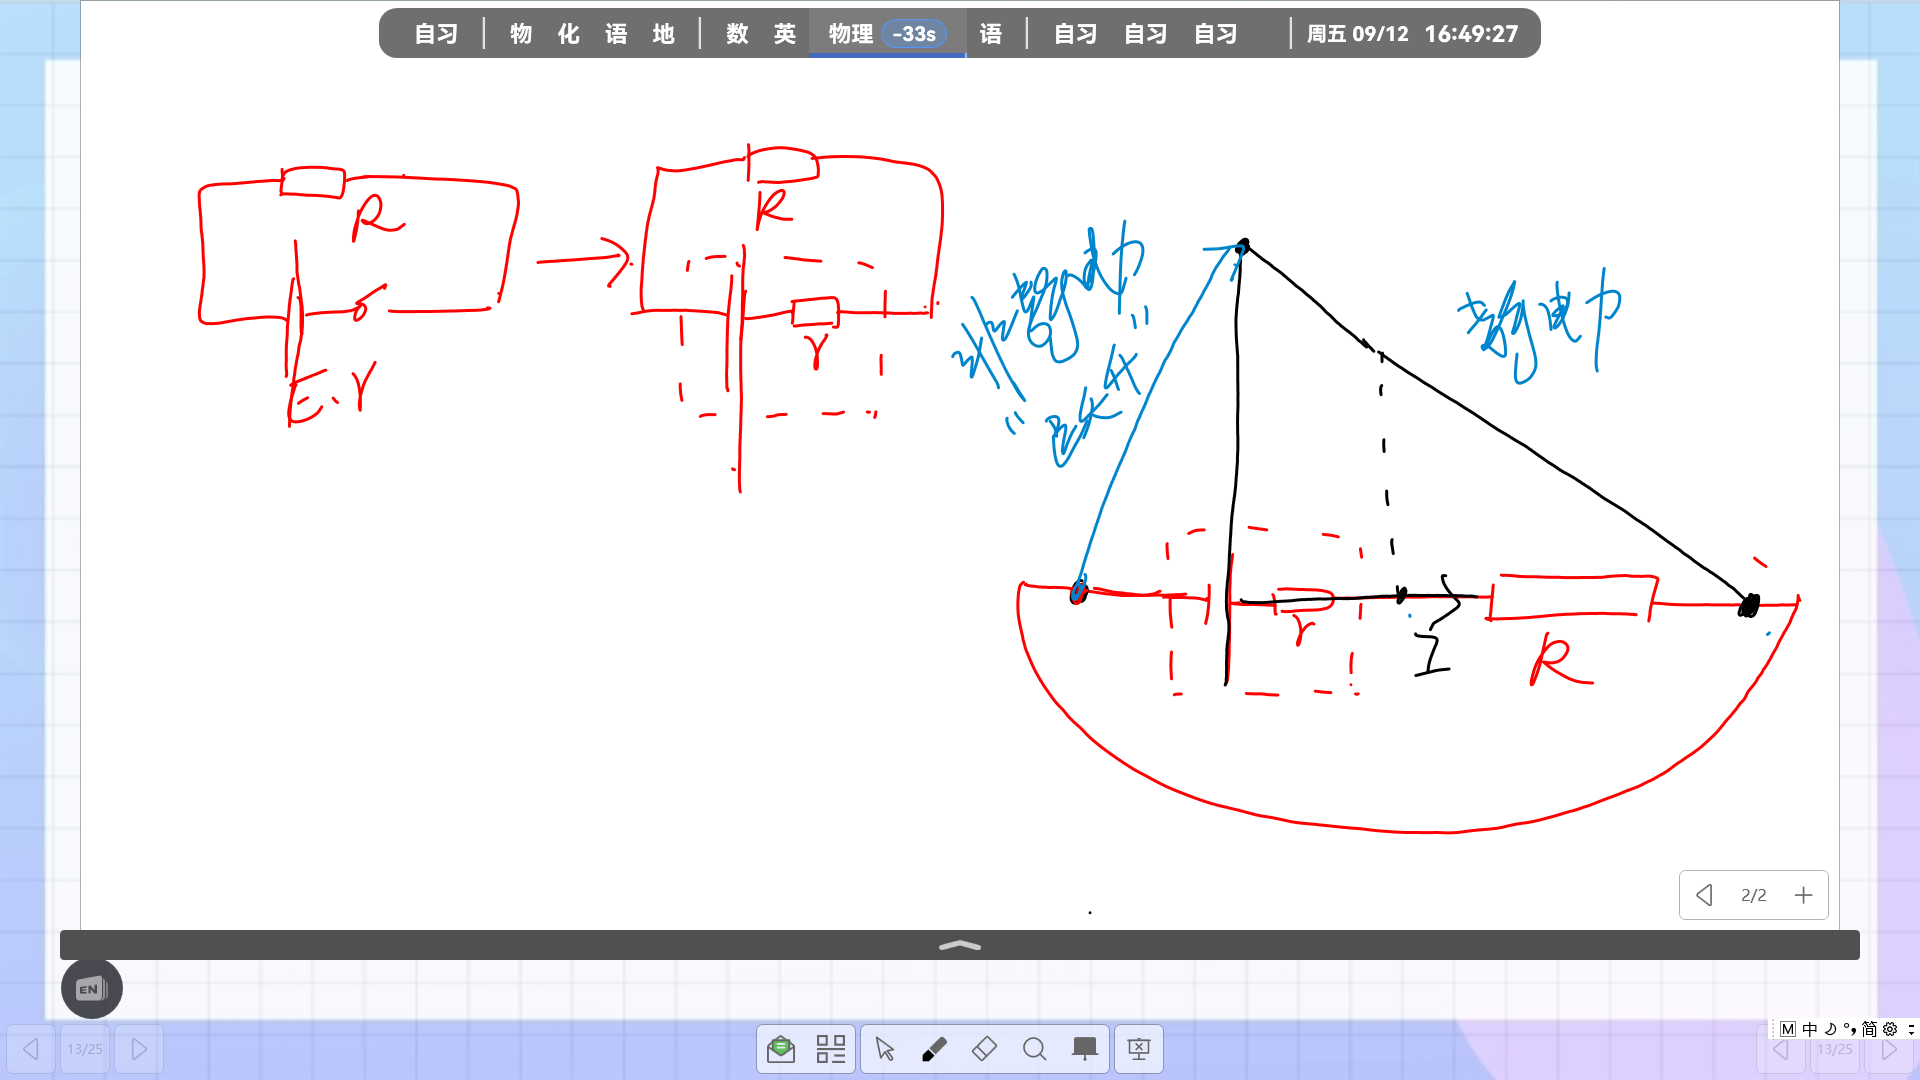 自习 物 化 语 地 数 英 物理 -33s 语 自习 自习 自习 周五 09/12 16:49:27
R
E.r
R
r
非静电力
静电力
r
I
R
2/2
EN
13/25
M 中 简
13/25